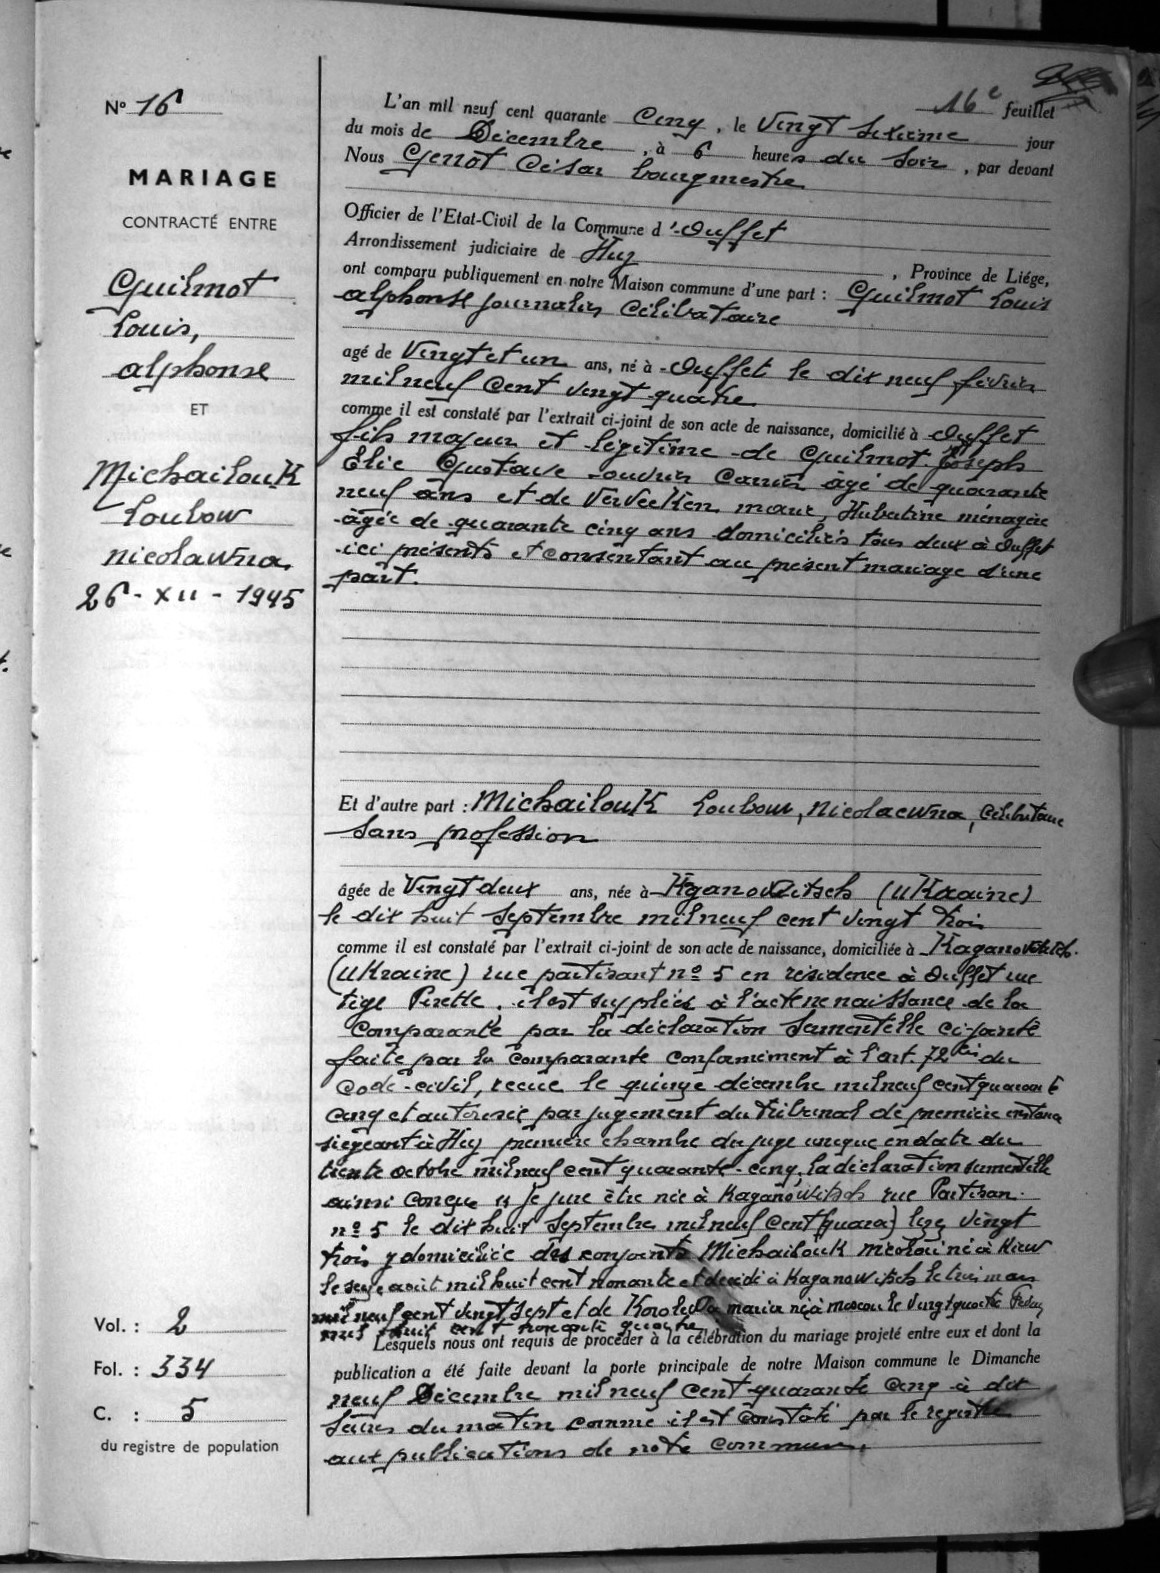 N° 16
MARIAGE
CONTRACTÉ ENTRE
Guilmot
Louis,
alphonse
ET
Michailouk
Loubow
nicolawna.
26 - XII - 1945
Vol. : 2
Fol. : 334
C. : 5
du registre de population
16e feuillet
L'an mil neuf cent quarante Cinq, le Vingt sixième jour
du mois de Décembre, à 6 heures du Soir, par devant
Nous Genot César bourgmestre
Officier de l'Etat-Civil de la Commune d'Ouffet
Arrondissement judiciaire de Huy, Province de Liége,
ont comparu publiquement en notre Maison commune d'une part : Guilmot Louis
alphonse journalier Célibataire
agé de Vingt et un ans, né à Ouffet le dix neuf février
mil neuf Cent vingt quatre
comme il est constaté par l'extrait ci-joint de son acte de naissance, domicilié à Ouffet
fils majeur et légitime de Guilmot Joseph
Élie Gustave ouvrier Carrier âgé de quarante
neuf ans et de Vervecken, Hubertine ménagère
âgée de quarante cinq ans domiciliés tous deux à Ouffet
ici présents et consentant au présent mariage d'une
part.
Et d'autre part : Michailouk Loubow, Nicolaewna, Célibataire
Sans profession
âgée de Vingt deux ans, née à (Ukraine)
le dix huit Septembre mil neuf cent vingt trois
comme il est constaté par l'extrait ci-joint de son acte de naissance, domiciliée à Kaganowitsch.
(Ukraine) rue partisant n° 5 en résidence à Ouffet rue
tige Pirette. il est suppléé à l'acte ne naissance de la
Comparante par la déclaration Sermentelle ci-jointe
faite par la Comparante conformément à l'art 72 bis du
Code-civil, recue le quinze décembre mil neuf cent quarante
cinq et autorisée par jugement du Tribunal de première instance
siegeant à Huy première chambre du juge unique en date du
trente octobre mil neuf cent quarante-cinq, la déclaration sermentelle
ainsi conçue " Je jure être née à Kaganowitsch rue Partisan
n° 5 le dix huit Septembre mil neuf Cent (quara) vingt
trois y domiciliée des conjoints Michailouk Nicolai né à Kiew
le seize août mil huit cent nonante et décédé à Kaganowitsch le trois mars
mil neuf cent vingt sept et de maria née à moscou le vingt quatre
mil huit cent nonante quatre
Lesquels nous ont requis de procéder à la célébration du mariage projeté entre eux et dont la
publication a été faite devant la porte principale de notre Maison commune le Dimanche
neuf Décembre mil neuf cent quarante Cinq à dix
heures du matin comme il est Constaté par le registre
aux publications de notre commune.